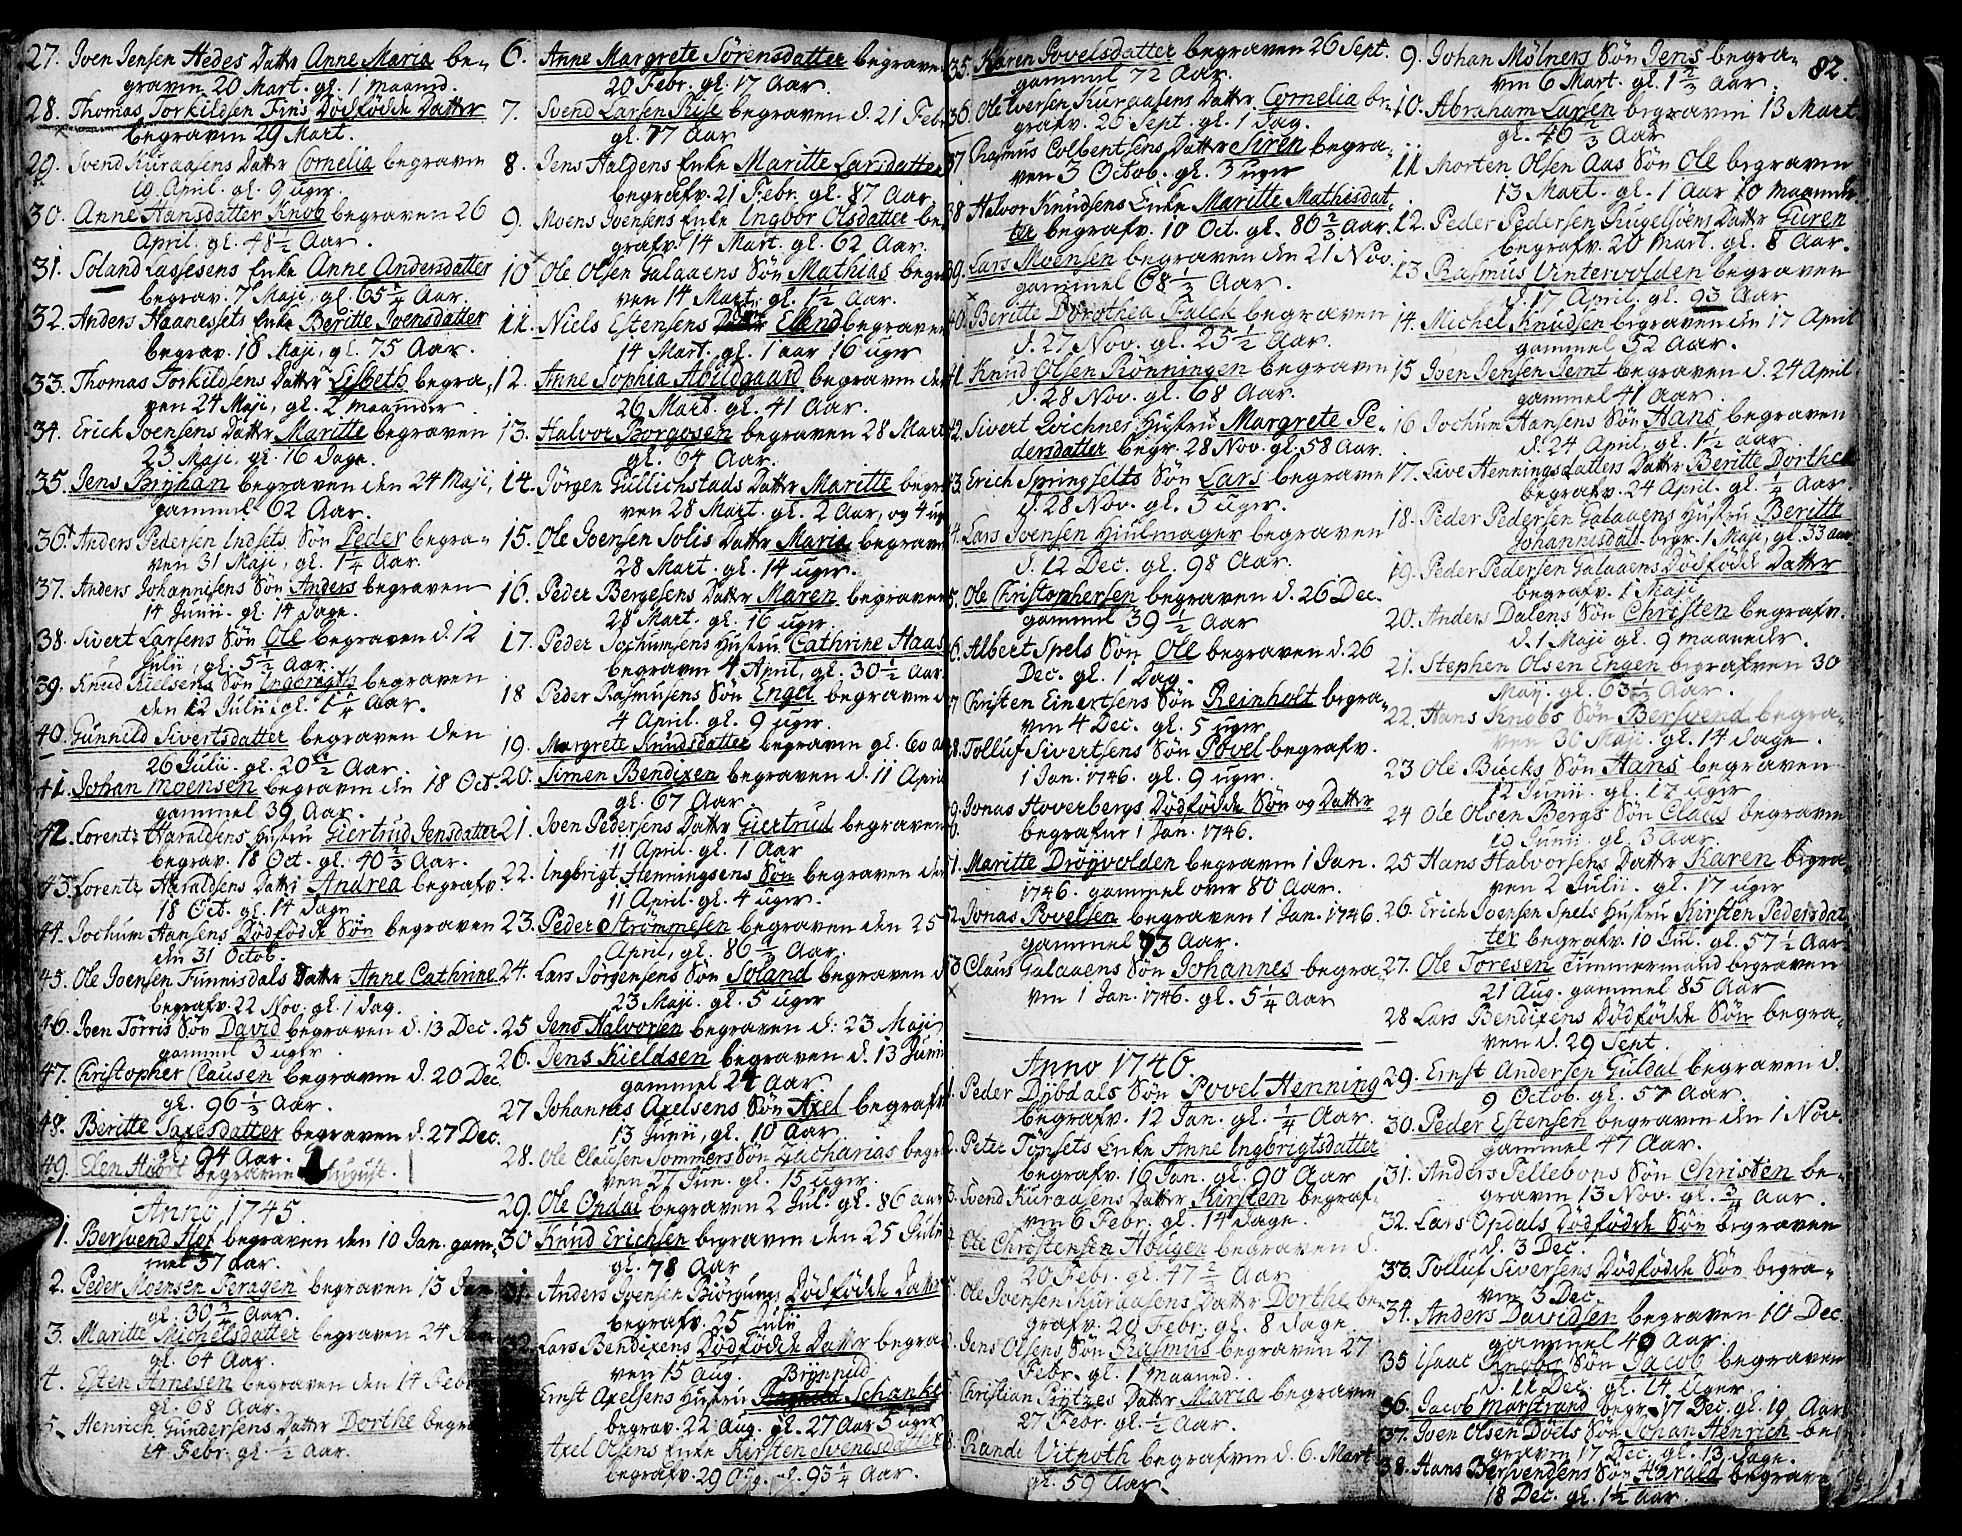 27. Iven Jensen Hedes Datter Anne Maria be-
graven 20 Mart. gl. 1 maaned.
28. Thomas Torkildsen Fins Dödfödde Datter
begraven 29 Mart.
29. Svend Kuraasens Datter Cornelia begraven
19 April. gl. 9 uger.
30. Anne Hansdatter Knob begraven 26
April. gl. 48 1/2 Aar.
31. Soland Lassesens Enke Anne Andersdatter
begrav. 7 Maji, gl. 65 1/4 Aar.
32. Anders Haanesets Enke Beritte Ivensdatter
begrav. 18 Maji, gl. 75 Aar.
33. Thomas Torkildsens Datter Lisbeth begra-
ven 24 Maji, gl. 2 maaneder
34. Erick Ivensens Datter Maritte begraven
23 Maji, gl. 16 Dage.
35. Jens Brijhan begraven den 24 Maji,
gammel 62 Aar.
36. Anders Pedersen Indsets Sön Peder begra-
ven 31 Maji, gl. 1 1/4 Aar.
37. Anders Johannesens Sön Anders begraven
14 Junii. gl. 14 Dage.
38. Sivert Larsens Sön Ole begraven d. 12
Julii, gl. 5 1/2 Aar.
39. Knud Kielsens Sön Ingbrigth begraven
den 12 Julii. gl. 1 1/4 Aar.
40. Gunnild Sivertsdatter begraven den
26 Julii. gl. 20 1/2 Aar.
41. Johan Moensen begraven den 18 Oct.
gammel 39 Aar.
42. Lorentz Haraldsens Hustru Giertrud Jensdatter
begrav. 18 Oct. gl. 40 2/3 Aar.
43. Lorentz Haraldsens Datter Andrea begrafv.
18 Oct. gl. 14 Dage
44. Jochum Hansens Dödfödde Sön begraven
den 31 Octob.
45. Ole Ivensen Funnisdals Datter Anne Cathrine
begrafv. 22 Nov. gl. 1 dag.
46. Iven Törris Sön David begraven d. 13 Dec.
gammel 3 uger.
47. Christopher Clausen begraven d. 20 Dec.
gl. 96 1/3 Aar.
48. Beritte Saxesdatter begraven d. 27 Dec.
gl. 94 Aar.
49. Elen Hiort begraven August.
Anno 1745.
1. Bersvend Hof begraven den 10 Jan. gam-
mel 37 aar.
2. Peder Moensen Feragen begraven 13 Jan
gl. 30 3/4 Aar.
3. Maritte Michelsdatter begraven 24 Jan
gl. 64 Aar.
4. Esten Arnesen begraven den 14 Febr
gl. 68 Aar.
5. Henrich Gundersens Datter Dorthe begra
14 Febr. gl. 1/2 Aar.
6. Anne Margrete Sörensdatter begraven
20 Febr. gl. 17 Aar.
7. Svend Larsen Riise begraven d. 21 Febr
gl. 77 Aar
8. Jens Haldens Enke Maritte Larsdatter
begrafv. 21 Febr. gl. 87 Aar.
9. Moens Ivensens Enke Ingbor Olsdatter be-
grafv. 14 Mart. gl. 62 Aar.
10 Ole Olsen Galaaens Sön Mathias begra
ven 14 Mart. gl. 1 1/2 Aar.
11. Niels Estensens Sön Ellend begraven
14 Mart. gl. 1 aar 16 uger
12. Anne Sophia Abildgaard begraven den
26 Mart. gl. 41 Aar.
13. Halvor Borgosen begraven 28 Mart
gl. 64 Aar.
14. Jörgen Gullichstads Datter Maritte begra
ven 28 Mart. gl. 2 Aar, og 4 ug
15. Ole Ivensen Solis Datter Maria begraven
28 Mart. gl. 14 uger.
16. Peder Bergesens Datter Maren begraven
28 Mart. gl. 16 uger.
17. Peder Jochumsens Hustru Cathrine Haas
begraven 4 April, gl. 30 1/2 Aar.
18 Peder Rasmusens Sön Engel begraven d
4 April. gl. 9 uger.
19. Margrete Knudsdatter begraven gl. 60 aar
20. Simen Bendixen begraven d. 11 April
gl. 67 Aar.
21. Iven Pedersens Datter Giertrud begraven
11 April. gl. 1 Aar
22. Ingbrigt Henningsens Sön begraven den
11 April. gl. 4 uger.
23. Peder Strömmesen begraven den 25
April, gl. 86 1/2 Aar.
24. Lars Jörgensens Sön Soland begraven d
23 Maji. gl. 5 uger
25 Jens Halvorsen begraven d: 23 Maji
26. Jens Kieldsen begraven d. 13 Junii
gammel 24 Aar.
27 Johannes Axelsens Sön Axel begrafv
13 Junii, gl. 10 Aar.
28. Ole Clausen Sommers Sön Zacharias begra
ven 27 Jun. gl. 15 uger.
29. Ole Opdal begraven 2 Jul. gl. 86 aar
30 Knud Erichsen begraven den 25 Julii
gl. 78 Aar
31. Anders Ivensen Biörgums Dödfödde Datter
begrafv. 25 Julii
32. Lars Bendixens Dödfödde Datter begra
ven 15 Aug.
Brynnild
Ernst Axelsens Hustru Schanke
begrav. 22 Aug. gl. 27 Aar 5 uger
Axel Olsens Enke Kirsten Svenesdatter
begrafv. 29 Aug. gl. 93 1/4 Aar.
35. Karen Povelsdatter begraven 26 Sept.
gammel 72 Aar.
36. Ole Iversen Kuraasens Datter Cornelia be-
grafv. 26 Sept. gl. 1 Dag.
37 Rasmus Colbentsens Datter Siren begra-
ven 3 Octob. gl. 3 uger
38 Halvor Knudsens Enke Maritte Mathisdat-
ter begrafv. 10 Oct. gl. 86 2/3 Aar.
39. Lars Moensen begraven den 21 Nov.
gammel 68 1/2 Aar.
40. Beritte Dorothea Falck begraven
d. 27 Nov. gl. 25 1/2 Aar.
41. Knud Olsen Rönningen begraven
d. 28 Nov. gl. 68 Aar.
42. Sivert Leichners Hustru Margrete Pe-
dersdatter begr. 28 Nov. gl. 58 Aar.
43. Erich Springfelts Sön Lars begraven
d. 28 Nov. gl. 3 uger.
4. Lars Ivensen Hiulmager begraven
d. 12 Dec. gl. 98 Aar.
5. Ole Christophersen begraven d. 26 Dec.
gammel 39 1/2 Aar
6. Albert Spels Sön Ole begraven d. 26
Dec. gl. 1 Dag.
7 Christen Einertsens Sön Reinholt begra-
ven 4 Dec. gl. 5 uger
8. Tolluf Sivertsens Sön Povel begrafv.
1 Jan. 1746. gl. 9 uger.
9. Jonas Hoverbergs Dödfödde Sön og Datter
begrafne 1 Jan. 1746.
1. Maritte Dröyvolden begraven 1 Jan.
1746. gammel over 80 Aar.
2. Jonas Povelsen begraven 1 Jan. 1746.
gammel 73 Aar.
3 Claus Galaaens Sön Johannes begra-
ven 1 Jan. 1746. gl. 5 1/4 Aar
Anno 1746.
1. Peder Dybdals Sön Povel Henning
begrafv. 12 Jan. gl. 1/4 Aar.
2. Peter Tönsets Enke Anne Ingbrigtsdatter
begrafv. 16 Jan. gl. 90 Aar
3. Svend Kuraasens Datter Kirsten begraf-
ven 6 Febr. gl. 14 Dage.
Ole Christensen Hougen begraven d.
20 Febr. gl. 47 1/2 Aar
Ole Ivensen Kuraasens Datter Dorthe be-
grafv. 20 Febr. gl. 8 Dage
Jens Olsens Sön Rasmus begraven 27
Febr. gl. 1 Maaned.
Christian Prytzes Datter Maria begraven
27 Febr. gl. 1/2 Aar.
8. Randi Vitpoth begrafven d. 6 Mart
gl. 59 Aar.
82.
9. Johan Mölners Sön Jens begra-
ven 6 Mart. gl. 1 2/3 Aar.
10. Abraham Larsen begraven 13 Mart
gl. 46 2/3 Aar
11 Morten Olsen Aas Sön Ole begraven
13 Mart. gl. 1 Aar 10 maaneder
12. Peder Pedersen Rugelsöens Datter Guren
begrafv. 20 Mart. gl. 8 Aar.
13 Rasmus Vintervolden begraven
d. 17 April, gl. 93 Aar
14. Michel Knudsen begraven den 17 April
gammel 52 Aar.
15 Iven Jensen Jemt begraven d. 24 April
gammel 41 aar.
16 Jochum Hansens Sön Hans begraven
d. 24 April, gl. 1 1/2 aar
17. Live Henningsdatters Datter Beritte Dorthea
begrafv. 24 April. gl. 1/4 Aar.
18. Peder Pedersen Galaaens Hustru Beritte
Johannisdatt. begr. 1 Maji, gl. 33 aar
19. Peder Pedersen Galaaens Dödfödde Datter
begrafv. 1 Maji
20. Anders Dalens Sön Christen begrafv.
d. 1 Maji gl. 9 maaneder.
21. Stephen Olsen Engen begrafven 30
Maij. gl. 63 1/2 Aar.
22. Hans Knobs Sön Bersvend begra-
ven 30 Maji. gl. 14 Dage.
23 Ole Bucks Sön Hans begraven
12 Junii. gl. 17 uger
24 Ole Olsen Bergs Sön Claus begraven
19 Junii. gl. 3 Aar.
25 Hans Halvorsens Datter Karen begra-
ven 2 Julii. gl. 17 uger
26. Erich Ivensen Spels Hustru Kirsten Pedersdat
ter begrafv. 10 Jul. gl. 57 1/2 Aar
27. Ole Toresen Timmermand begraven
21 Aug. gammel 85 Aar
28 Lars Bendixens Dödfödde Sön begra-
ven d. 29 Sept.
29. Ernst Andersen Guldal begraven d.
9 Octob. gl. 57 Aar.
30. Peder Estensen begraven den 1 Nov.
gammel 47 Aar.
31. Anders Tellebons Sön Christen be-
graven 13 Nov. gl. 3/4 Aar.
32. Lars Opdals Dödfödde Sön begraven
d. 3 Dec.
33. Tolluf Siversens Dödfödde Sön begra-
ven 3 Dec.
34. Anders Davidsen begraven 10 Dec
gammel 40 Aar.
35 Isaac Knobs Sön Jacob begraven
d. 11 Dec. gl. 14 Uger
36. Jacob Marstrand begr. 17 Dec. gl. 19 Aar
37. Iven Olsen Döels Sön Johan Henrich be
graven 17 Dec. gl. 13 Dage.
38. Hans Bersvendsens Sön Harald begrave
18 Dec. gl. 1 1/2 Aar.